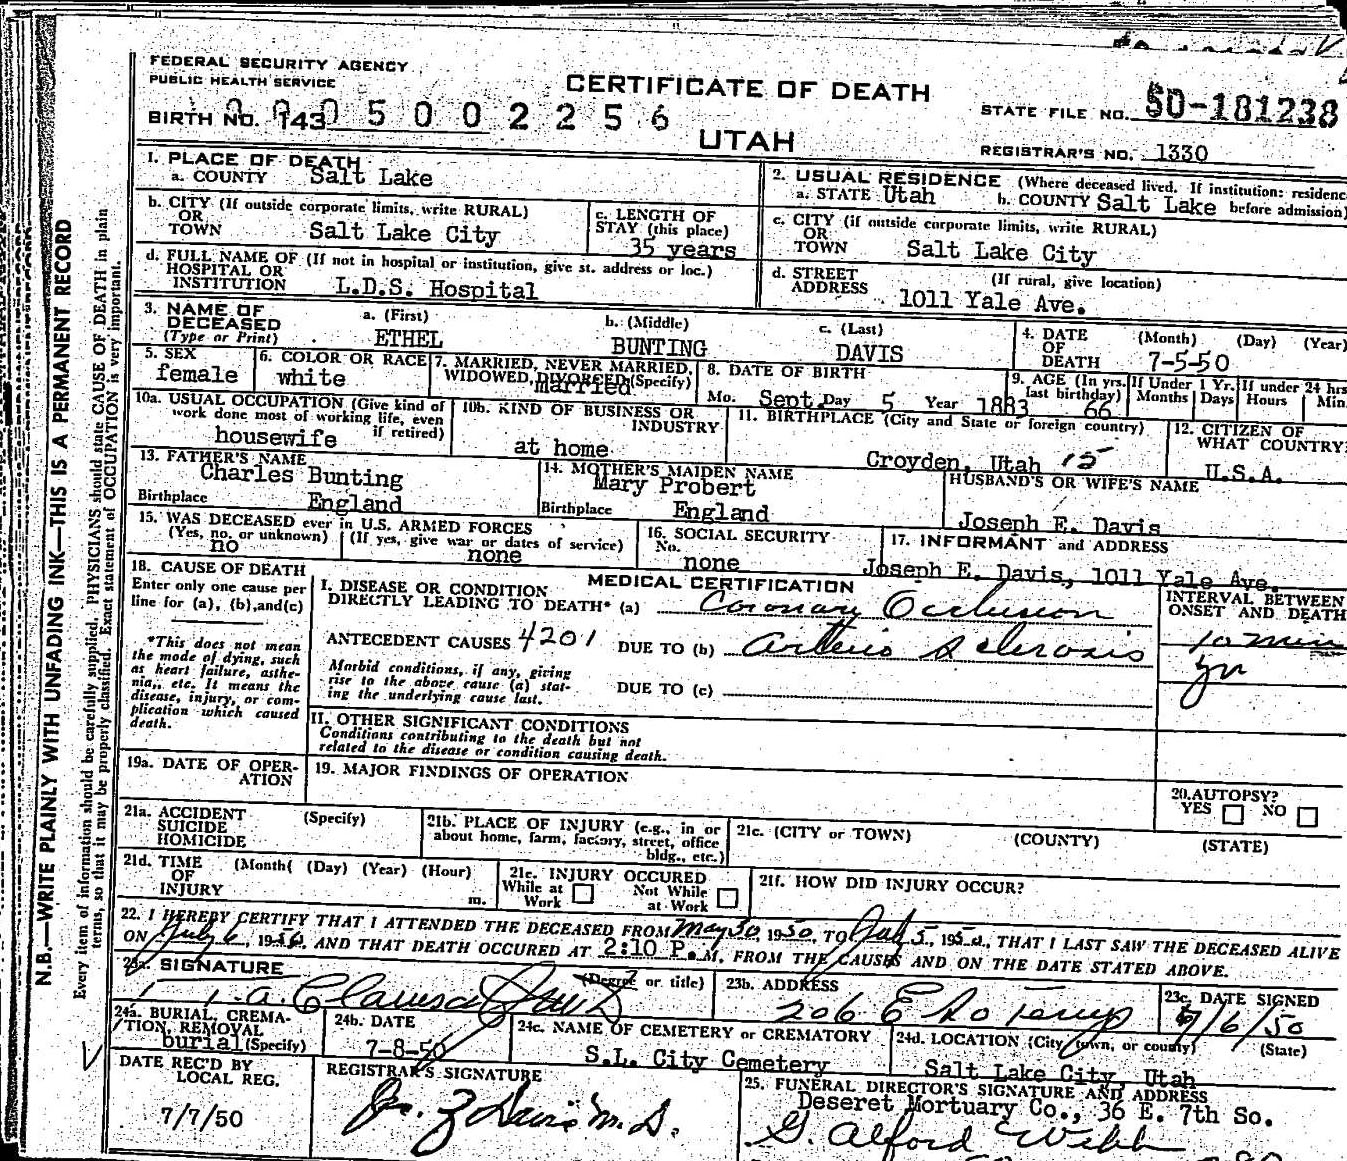 FEDERAL SECURITY AGENCY
PUBLIC HEALTH SERVICE
CERTIFICATE OF DEATH
STATE FILE NO. 50-181238
BIRTH NO. 143 5002256
UTAH
REGISTRAR'S NO. 1330
1. PLACE OF DEATH
a. COUNTY Salt Lake
2. USUAL RESIDENCE (Where deceased lived. If institution: residenc
a. STATE Utah b. COUNTY Salt Lake before admission)
b. CITY (If outside corporate limits, write RURAL)
OR
TOWN Salt Lake City
c. LENGTH OF
STAY (this place)
35 years
c. CITY (if outside corporate limits, write RURAL)
OR
TOWN Salt Lake City
d. FULL NAME OF (If not in hospital or institution, give st. address or loc.)
HOSPITAL OR
INSTITUTION L.D.S. Hospital
d. STREET (If rural, give location)
ADDRESS 1011 Yale Ave.
3. NAME OF
DECEASED
(Type or Print)
a. (First)
ETHEL
b. (Middle)
BUNTING
c. (Last)
DAVIS
4. DATE (Month) (Day) (Year)
OF
DEATH 7-5-50
5. SEX
female
6. COLOR OR RACE
white
7. MARRIED, NEVER MARRIED,
WIDOWED, DIVORCED (Specify)
married
8. DATE OF BIRTH
Mo. Sept. Day 5 Year 1883
9. AGE (In yrs. last birthday) 66
If Under 1 Yr. Months Days
If under 24 hrs Hours Min.
10a. USUAL OCCUPATION (Give kind of
work done most of working life, even
if retired)
housewife
10b. KIND OF BUSINESS OR
INDUSTRY
at home
11. BIRTHPLACE (City and State or foreign country)
Croyden, Utah 15
12. CITIZEN OF
WHAT COUNTRY?
U.S.A.
13. FATHER'S NAME
Charles Bunting
Birthplace England
14. MOTHER'S MAIDEN NAME
Mary Probert
Birthplace England
HUSBAND'S OR WIFE'S NAME
Joseph E. Davis
15. WAS DECEASED ever in U.S. ARMED FORCES
(Yes, no, or unknown) (If yes, give war or dates of service)
no none
16. SOCIAL SECURITY
No.
none
17. INFORMANT and ADDRESS
Joseph E. Davis, 1011 Yale Ave.
18. CAUSE OF DEATH
Enter only one cause per
line for (a), (b), and (c)
*This does not mean
the mode of dying, such
as heart failure, asthe-
nia, etc. It means the
disease, injury, or com-
plication which caused
death.
MEDICAL CERTIFICATION
I. DISEASE OR CONDITION
DIRECTLY LEADING TO DEATH* (a) Coronary Occlusion
ANTECEDENT CAUSES 4201 DUE TO (b) Arterio Sclerosis
Morbid conditions, if any, giving
rise to the above cause (a) stat-
ing the underlying cause last.
DUE TO (c)
INTERVAL BETWEEN
ONSET AND DEATH
10 min
yr
II. OTHER SIGNIFICANT CONDITIONS
Conditions contributing to the death but not
related to the disease or condition causing death.
19a. DATE OF OPER-
ATION
19. MAJOR FINDINGS OF OPERATION
20. AUTOPSY?
YES NO
21a. ACCIDENT (Specify)
SUICIDE
HOMICIDE
21b. PLACE OF INJURY (e.g., in or
about home, farm, factory, street, office
bldg., etc.)
21c. (CITY or TOWN) (COUNTY) (STATE)
21d. TIME (Month( (Day) (Year) (Hour)
OF
INJURY m.
21e. INJURY OCCURED
While at Work Not While at Work
21f. HOW DID INJURY OCCUR?
22. I HEREBY CERTIFY THAT I ATTENDED THE DECEASED FROM May 30, 1950, TO July 5, 1950, THAT I LAST SAW THE DECEASED ALIVE
ON July 6, 1950, AND THAT DEATH OCCURED AT 2:10 P.M. FROM THE CAUSES AND ON THE DATE STATED ABOVE.
23a. SIGNATURE (Degree or title)
23b. ADDRESS
206 E So Temp
23c. DATE SIGNED
7/6/50
24a. BURIAL, CREMA-
TION, REMOVAL
burial (Specify)
24b. DATE
7-8-50
24c. NAME OF CEMETERY or CREMATORY
S.L. City Cemetery
24d. LOCATION (City, town, or county) (State)
Salt Lake City, Utah
DATE REC'D BY
LOCAL REG.
7/7/50
REGISTRAR'S SIGNATURE
Davis M.D.
25. FUNERAL DIRECTOR'S SIGNATURE AND ADDRESS
Deseret Mortuary Co., 36 E. 7th So.
G. Alford Webb
N.B.—WRITE PLAINLY WITH UNFADING INK—THIS IS A PERMANENT RECORD
Every item of information should be carefully supplied. PHYSICIANS should state CAUSE OF DEATH in plain
terms, so that it may be properly classified. Exact statement of OCCUPATION is very important.